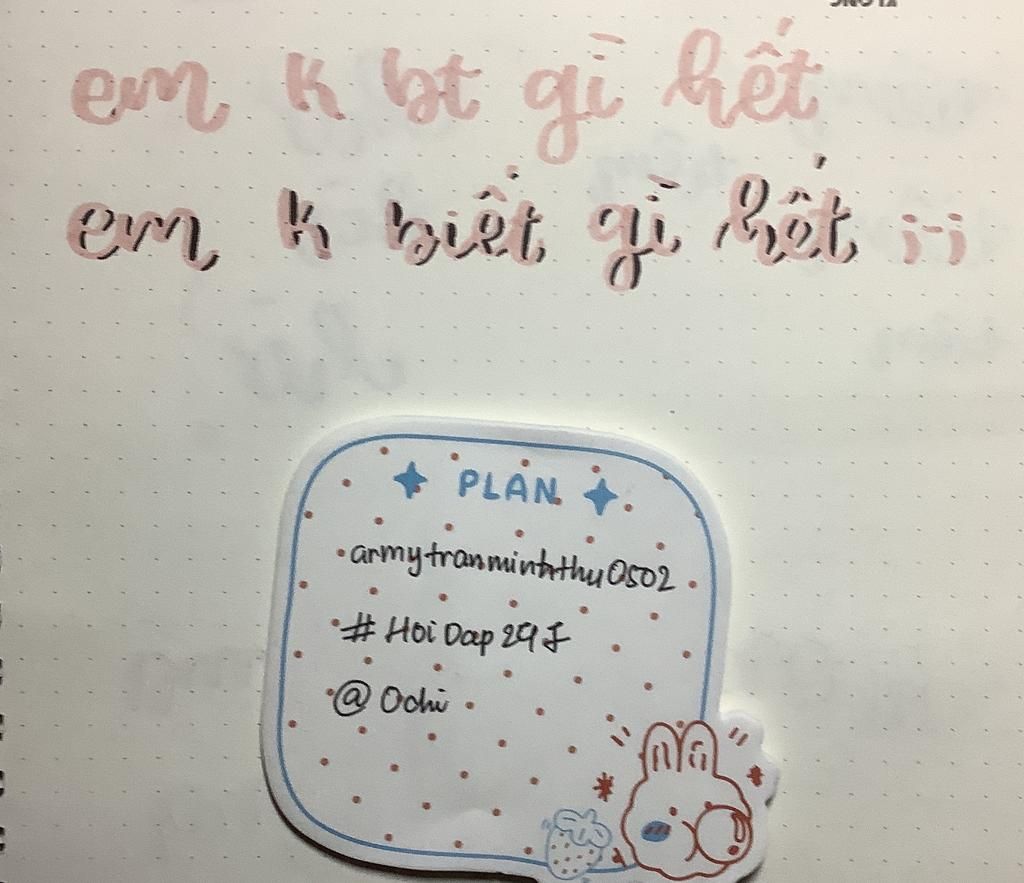 em k bt gì hết
em k biết gì hết i-i
PLAN
armytranminhthu0502
# HoiDap24F
@ Ochi